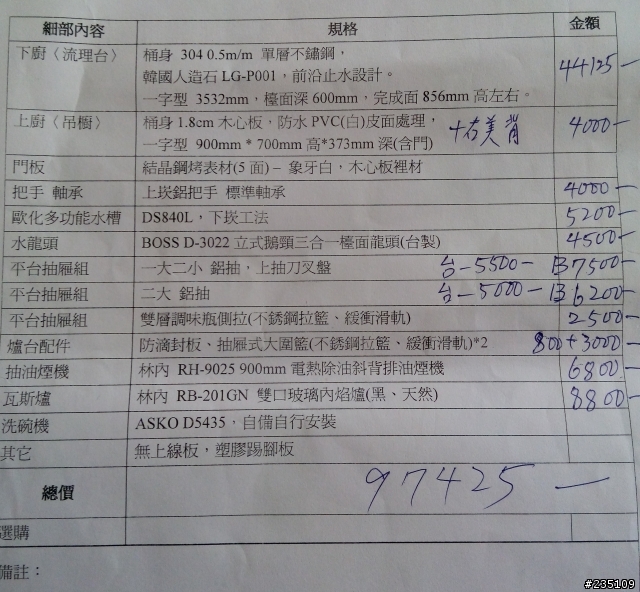 細部內容 規格 金額
下廚〈流理台〉 桶身 304 0.5m/m 單層不鏽鋼，
韓國人造石 LG-P001，前沿止水設計。 44125—
一字型 3532mm，檯面深 600mm，完成面 856mm 高左右。
上廚〈吊櫥〉 桶身 1.8cm 木心板，防水 PVC(白)皮面處理， 十右美背 4000—
一字型 900mm * 700mm 高*373mm 深(含門)
門板 結晶鋼烤表材(5 面) – 象牙白，木心板裡材
把手 軸承 上崁鋁把手 標準軸承 4000—
歐化多功能水槽 DS840L，下崁工法 5200—
水龍頭 BOSS D-3022 立式鵝頸三合一檯面龍頭(台製) 4500—
平台抽屜組 一大二小 鋁抽，上抽刀叉盤 台—5500— B7500—
平台抽屜組 二大 鋁抽 台—5000— B6200—
平台抽屜組 雙層調味瓶側拉(不銹鋼拉籃、緩衝滑軌) 2500—
爐台配件 防滴封板、抽屜式大圍籃(不銹鋼拉籃、緩衝滑軌)*2 800+3000—
抽油煙機 林內 RH-9025 900mm 電熱除油斜背排油煙機 6800—
瓦斯爐 林內 RB-201GN 雙口玻璃內焰爐(黑、天然) 8800—
洗碗機 ASKO D5435，自備自行安裝
其它 無上線板，塑膠踢腳板
總價 97425 —
選購
備註：
#235109